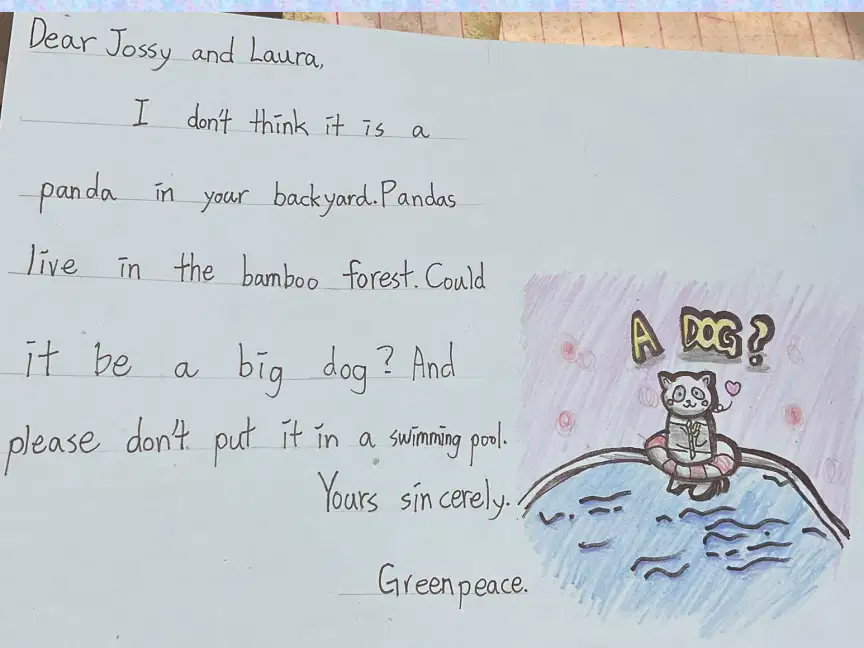 Dear Jossy and Laura,
I don't think it is a
panda in your backyard. Pandas
live in the bamboo forest. Could
it be a big dog? And
please don't put it in a swimming pool.
Yours sincerely.
Greenpeace.
A DOG?